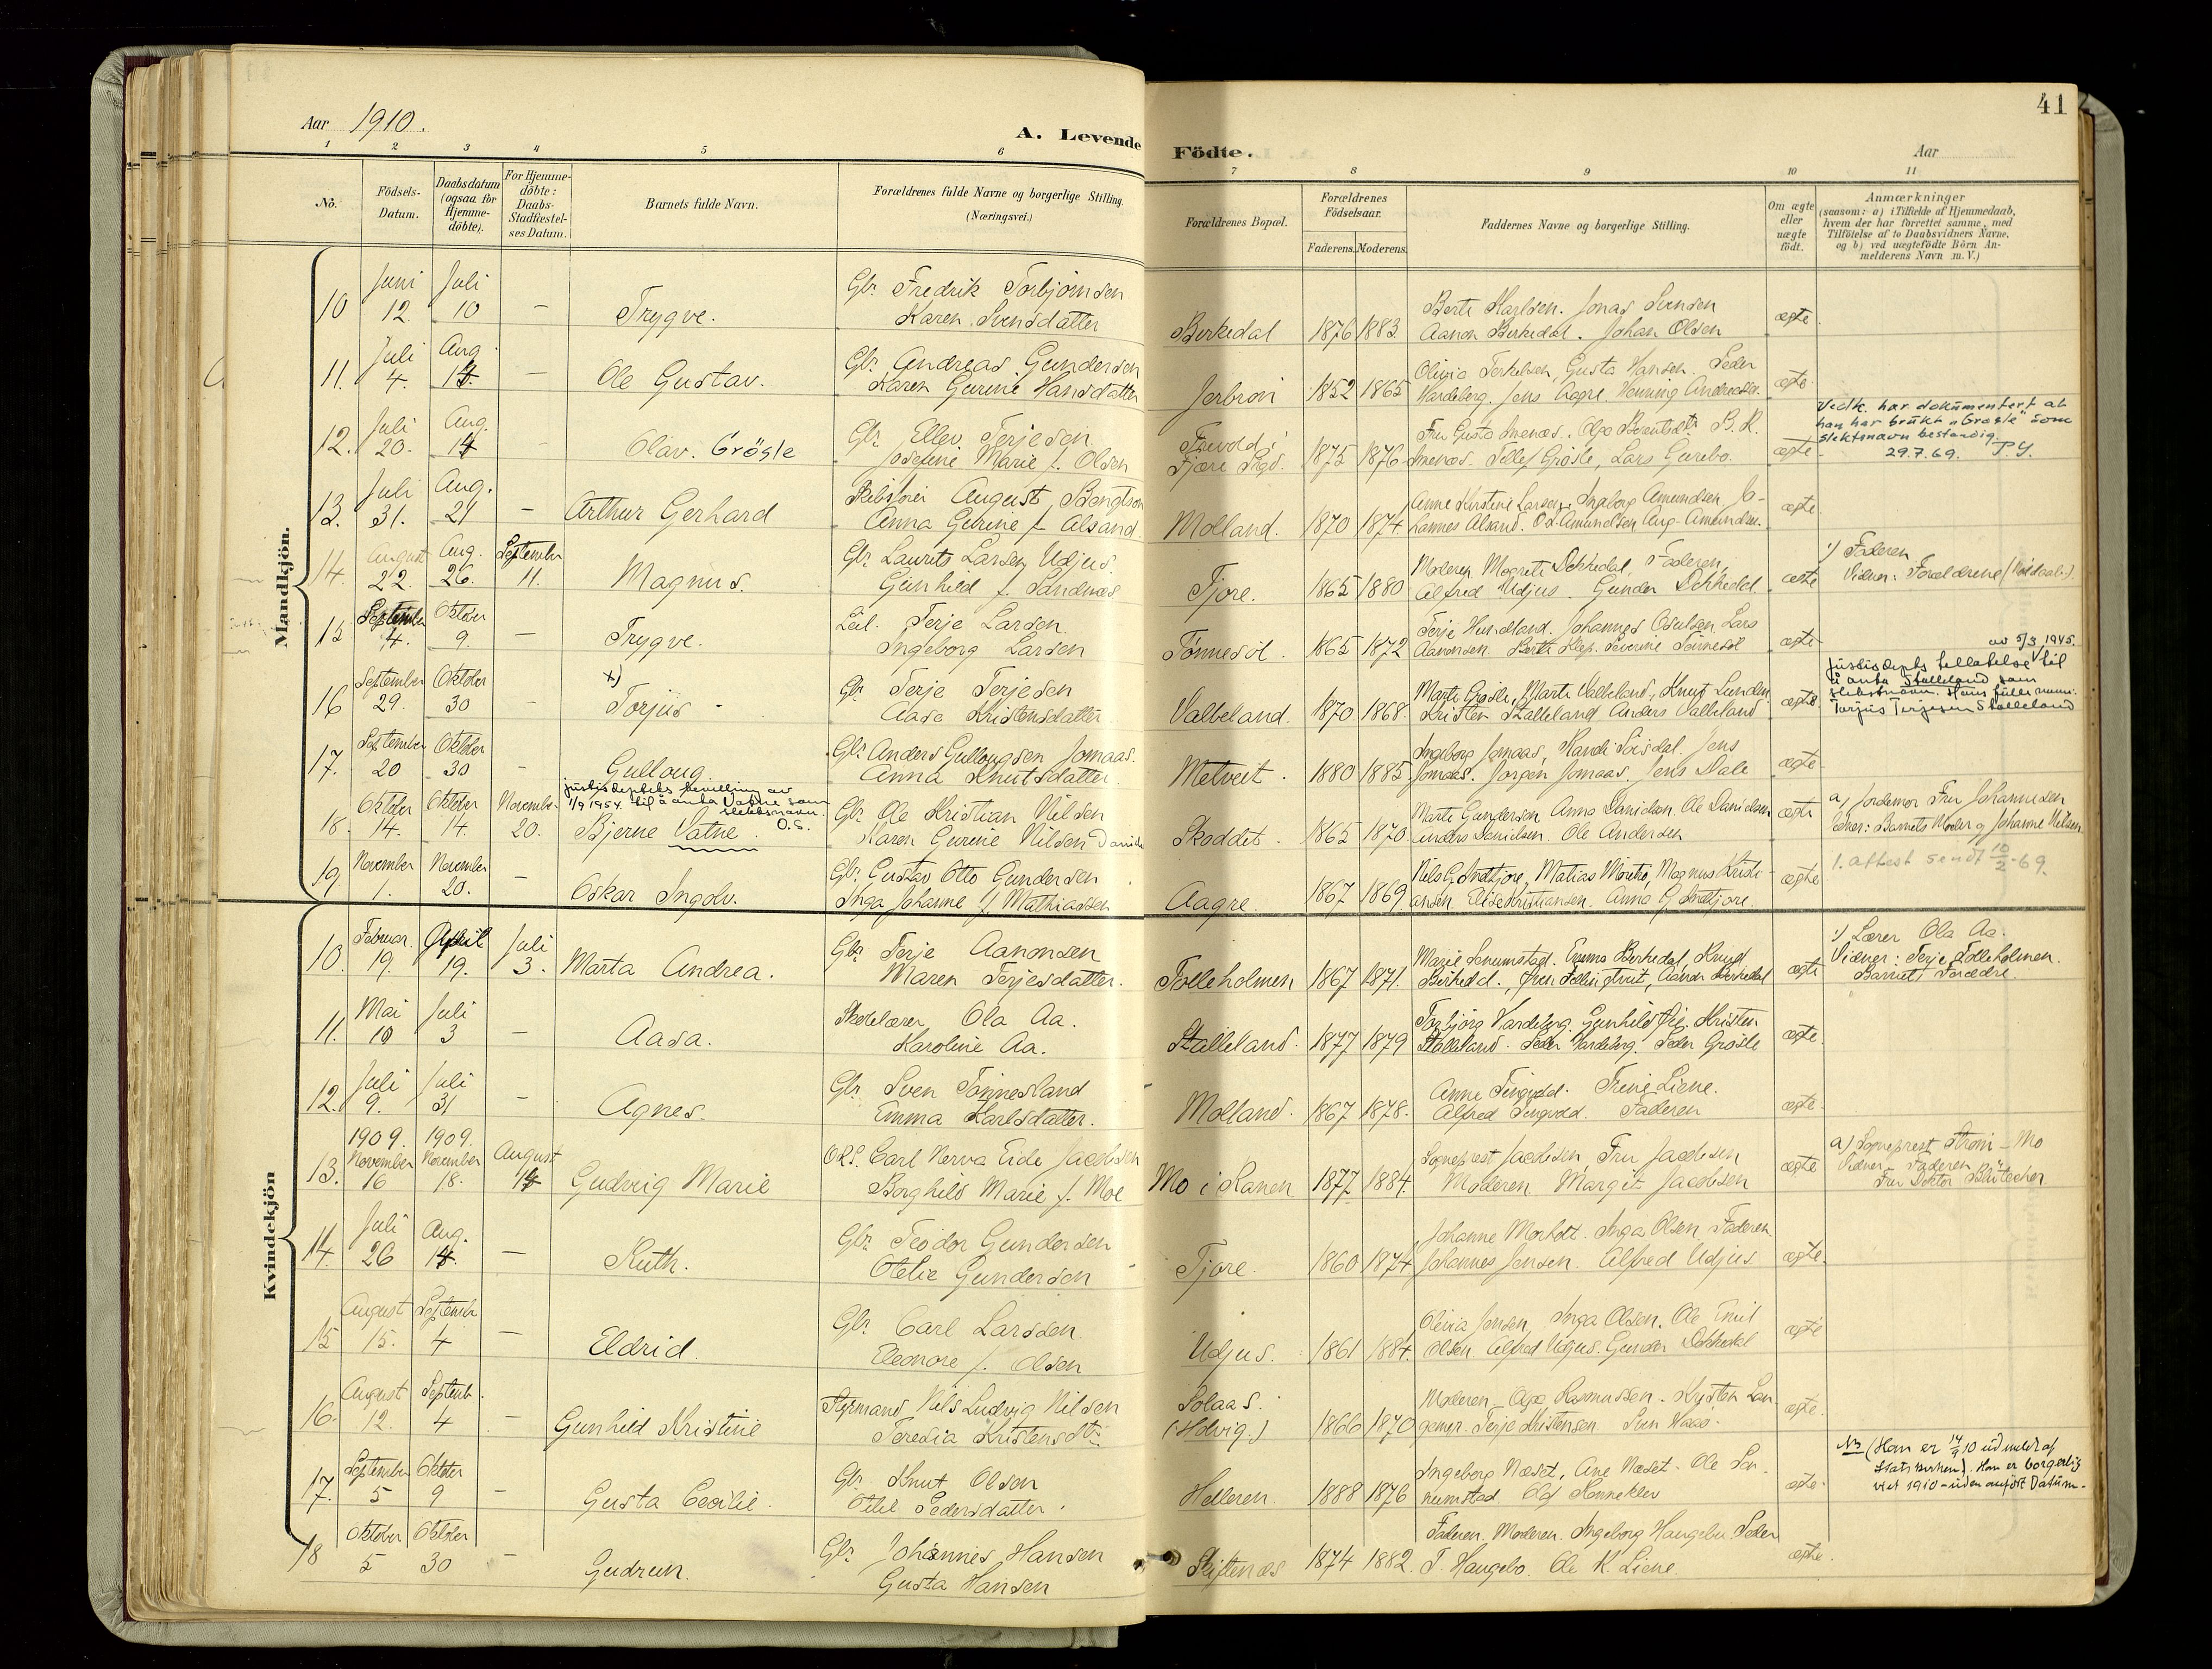 Aar 1910.
A. Levende
Födte.
Aar
41
1 2 3 4 5 6 7 8 9 10 11
No.
Födsels-Datum.
Daabsdatum (ogsaa for Hjemme-döbte).
For Hjemme-döbte: Daabs-Stadfæstel-ses Datum.
Barnets fulde Navn.
Forældrenes fulde Navne og borgerlige Stilling. (Næringsvei.)
Forældrenes Bopæl.
Forældrenes Födselsaar.
Faderens. Moderens.
Faddernes Navne og borgerlige Stilling.
Om ægte eller uægte födt.
Anmærkninger
(saasom: a) i Tilfælde af Hjemmedaab,
hvem der har forrettet samme, med
Tilföielse af to Daabsvidners Navne,
og b) ved uægtefödte Börn An-
melderens Navn m. V.)
Mandkjön.
10 Juni 12. Juli 10 – Trygve. Gbr. Fredrik Torbjørnsen
Karen Svensdatter Birkedal 1876 1883. Berte Karlsen. Jonas Svensen
Aanon Birkedal. Johan Olsen ægte
11. Juli 4. Aug. 14. – Ole Gustav. Gbr. Andreas Gundersen
Karen Gurine Hansdatter 1852 1865 Olivia Terkelsen, Gusta Hansen. Peder
Vardeberg. Jens Aagre. Henning Andreassen. ægte
12. Juli 20. Aug. 14 Olav. Grösle Gbr. Ellev Terjesen
Josefine Marie f. Olsen Fjære Prgd. 1875 1876 Fru Gusta Smenæs.
Smenæs. Tellef Grösle, Lars Gurebo. ægte
Vedk. har dokumentert at
han har brukt "Grøsle" som
slektsnavn bestandig.
29.7.69.
13. Juli 31. Aug. 21 – Arthur Gerhard August Bengtson
Anna Gurine f. Alsand. Molland. 1870 1874. Anne Kirstine Larsen, Ingeborg Amundsen, Jo-
hannes Alsand. Od. Amundsen Aug. Amundsen. ægte
14. August 22. Aug. 26. September 11. Magnus. Gbr. Laurits Larsen Udjus.
Gunhild f. Sandnæs Tjore. 1865 1880 Moderen, Dokkedal, Faderen,
Alfred Udjus. Gunder Dokkedal. ægte
1) Faderen
Vidner: Forældrene
15 September 4. Oktober 9. – Trygve. Terje Larsen.
Ingeborg Larsen Tønnesøl. 1865 1872 Terje Hundland. Johannes Osulsen Lars
Aanonsen. Berte Klep. Severine Tønnesøl ægte
16 September 29. Oktober 30 – x) Torjus – Gbr. Terje Terjesen
Aasa Kristensdatter Valbeland. 1870 1868. Marte Grøsle, Marte Valleland, Knut Lunden
Kristen Stalleland Anders Valleland ægte
av 5/3 1945.
Justisdepts tillatelse til
å anta Stalleland som
slektsnavn. Hans fulle navn:
Torjus Terjesen Stalleland
17. September 20 Oktober 30 – Gulloug. Gbr. Anders Gullougsen Jomaas.
Anna Knutsdatter. Metveit. 1880 1885 Ingeborg Jomaas,
Jomaas. Jørgen Jomaas. Jens Dale ægte
justisdeptets bevilling av
1/9 1954 til å anta Vatne som
slektsnavn.
O.S.
18. Oktober 14. Oktober 14. November 20. Bjerne Vatne. Gbr. Ole Kristian Nilsen
Karen Gurine Nilsen Skoddet. 1865 1870. Marte Gundersen Anna Danielsen. Ole Danielsen
Anders Danielsen. Ole Andersen ægte
a) Jordemor Fru Johannesen
Vidner: Barnets Moder og Johanne Nilsen
19 November 1. November 20. – Oskar Ingolv. Gbr. Gustav Otto Gundersen
Inga Johanne f. Mathiassen Aagre. 1867 1869 Nils G. Indtjore, Matias Magnus Kristi-
ansen. Elise Kristiansen. Anna G. Indtjore. ægte
1. attest sendt 10/2-69.
Kvindekjön
10. Februar. 19. April 19. Juli 3. Marta Andrea. Gbr. Terje Aanonsen
Maren Terjesdatter. Folleholmen 1867 1871. Marie Snumstad. Emma Birkedal, Knud
Birkedal., Aanon Birkedal ægte
1) Lærer Ola Aa.
Vidner: Terje Folleholmen.
Barnets Forældre.
11. Mai 19 Juli 3 – Aasa. Skolelærer Ola Aa.
Karoline Aa. Stalleland. 1877 1879 Torbjørg Vardeberg. Gunhild Øig. Kristen
Stalleland. Peder Vardeberg. Peder Grösle ægte.
12. Juli 9. Juli 31 – Agnes. Gbr. Sven Tønnesland
Emma Karlsdatter. Molland. 1867 1878. Anne Tingvold. Trine Liene.
Alfred Tingvold. Faderen ægte.
13. 1909. November 16 1909. November 18. August 14 Gudvig Marie O.R.S. Carl Nerva Eide Jacobsen
Borghild Marie f. Moe Mo i Ranen 1877 1884. Sogneprest Jacobsen Fru Jacobsen
Moderen. Margit Jacobsen ægte
a) Sogneprest Strøm – Mo
Vidner – Faderen
Fru Doktor
14. Juli 26 Aug. 14. – Ruth. Gbr. Teodor Gundersen
Otelie Gundersen Tjore. 1860 1874 Johanne Inga Olsen, Faderen
Johannes Jensen. Alfred Udjus ægte.
15 August 15. September 4 – Eldrid. Gbr. Carl Larssen.
Eleonore f. Olsen Udjus. 1861 1884. Olivia Jensen, Inga Olsen. Ole Emil
Olsen Alfred Udjus. Gunder Dokkedal ægte
16. August 12. Septemb. 4 – Gunhild Kristine Styrmand Nils Ludvig Nilsen
Teresia Kristensdtr. Solaas.
(Holvig.) 1866 1870 Moderen – Olga Rasmussen. Kristen Lan-
gemyr. Terje Kristensen Sven Haas. ægte.
17. September 5 Oktober 9 – Gusta Cecilie. Gbr. Knut Olsen
Otilie Pedersdatter. Helleren. 1888 1876 Ingeborg Næset, Ane Næset. Ole Snu-
numstad. Olaf Kanneklev ægte.
NB (Han er 14/9 10 udmeldt af
Statskirken). Han er borgerlig
viet 1910 – uden anført Datum.
18 Oktober 5 Oktober 30 – Gudrun. Gbr. Johannes Hansen
Gusta Hansen Skiftenæs 1874 1882. Faderen. Moderen. Ingeborg Haugebo. Peder
T. Haugebo. Ole K. Liene. ægte.